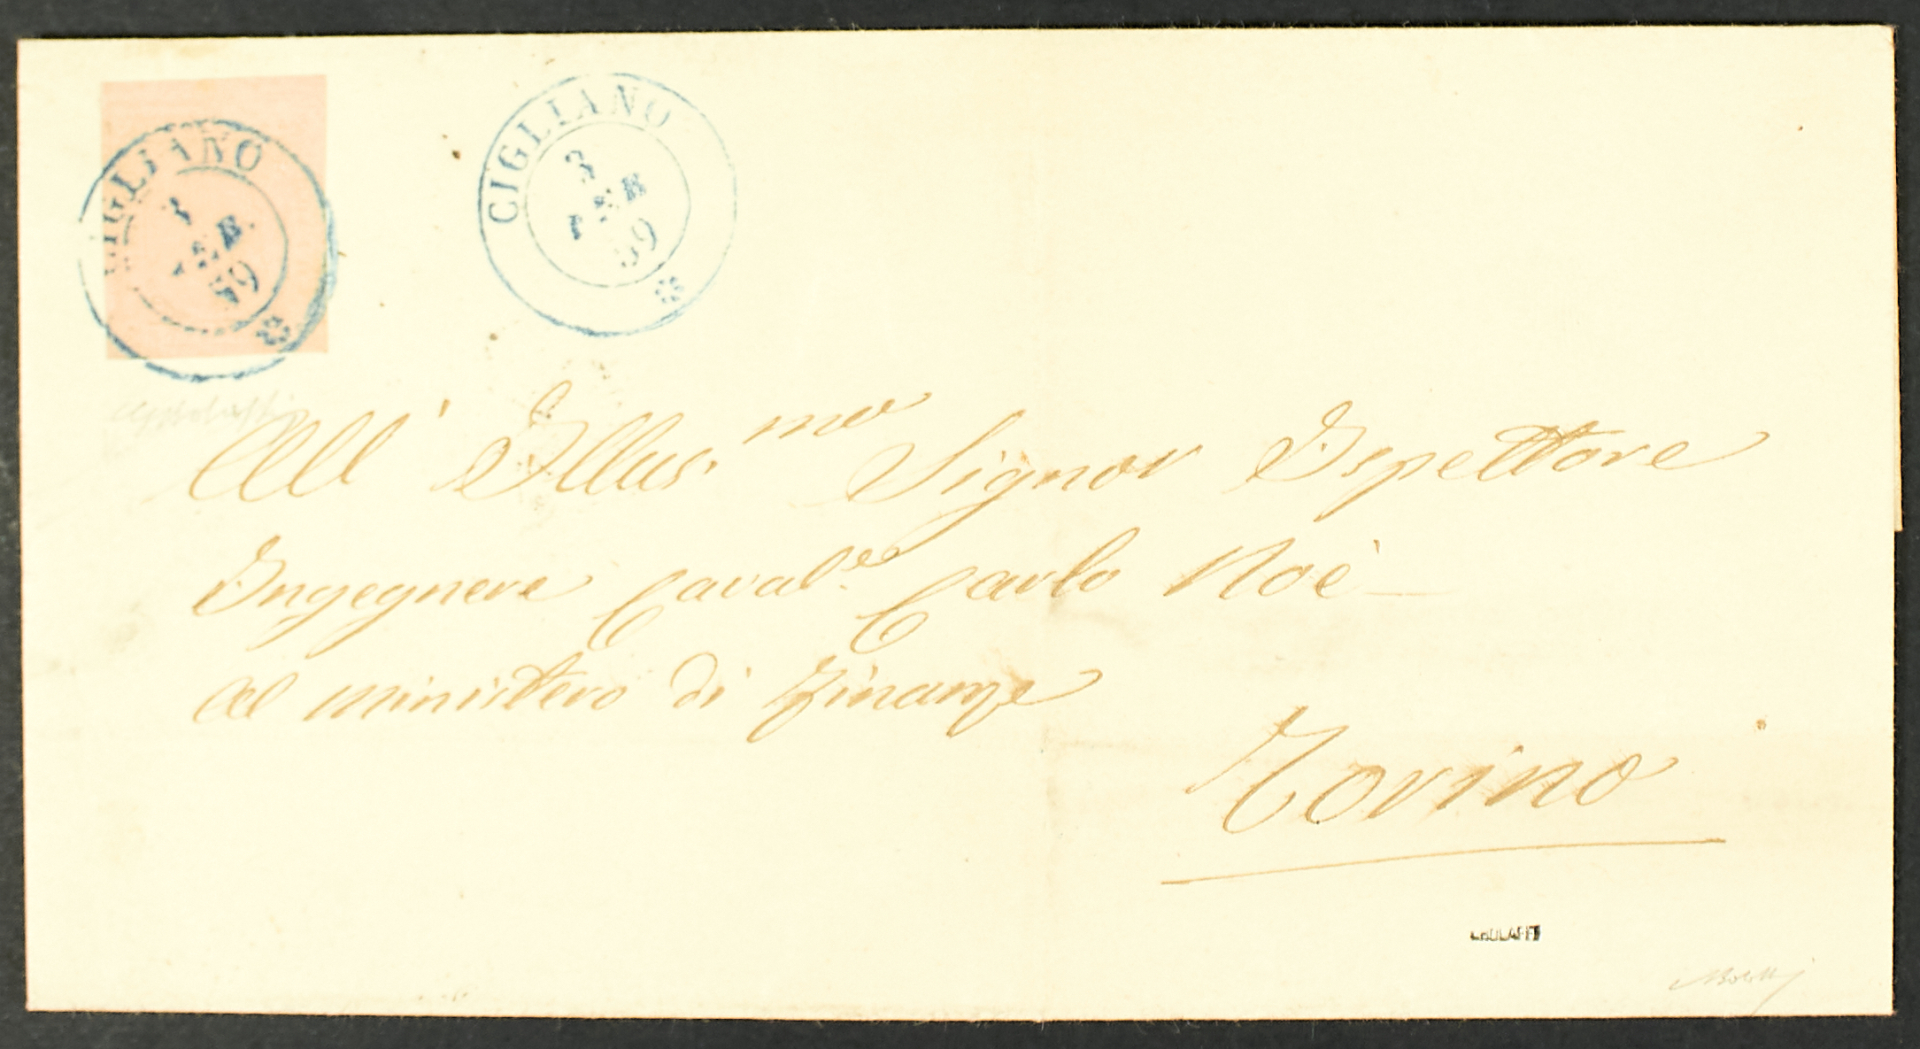 CIGLIANO
3
FEB.
59
CIGLIANO
3
FEB
59
All' Illus.mo Signor Ispettore
Ingegnere Caval.e Carlo Noè
Al ministero di Finanze
Torino